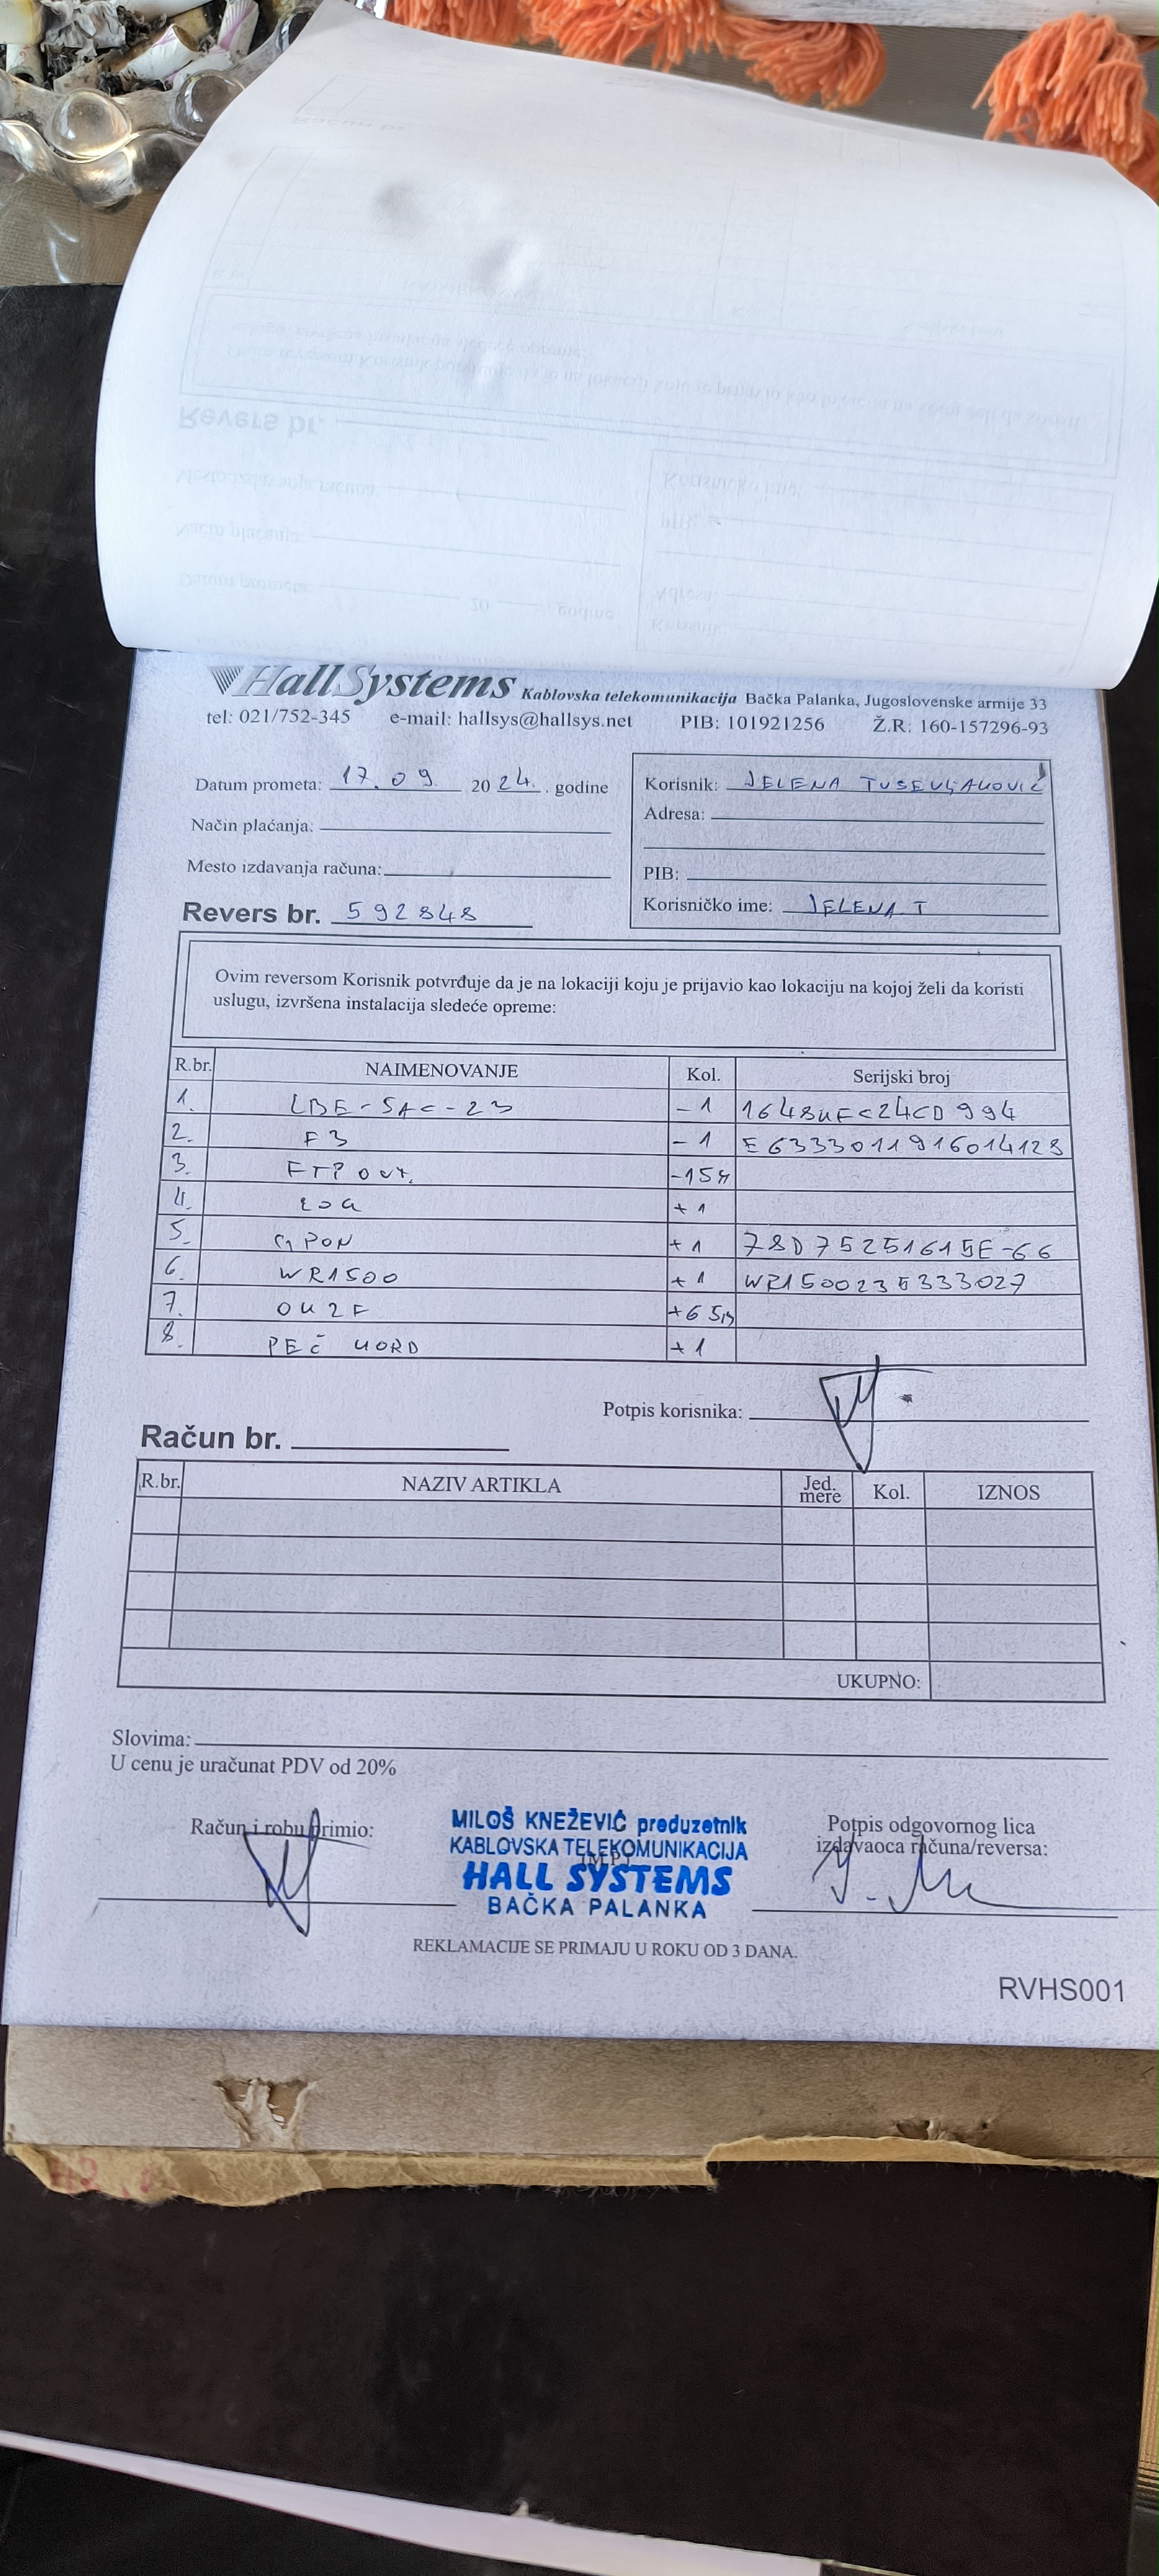 HallSystems Kablovska telekomunikacija Bačka Palanka, Jugoslovenske armije 33
tel: 021/752-345 e-mail: hallsys@hallsys.net PIB: 101921256 Ž.R: 160-157296-93
Datum prometa: 17.09. 2024. godine
Način plaćanja:
Mesto izdavanja računa:
Revers br. 592848
Korisnik: JELENA
Adresa:
PIB:
Korisničko ime: JELENA T
Ovim reversom Korisnik potvrđuje da je na lokaciji koju je prijavio kao lokaciju na kojoj želi da koristi
uslugu, izvršena instalacija sledeće opreme:
R.br. NAIMENOVANJE Kol. Serijski broj
1. LBE-5AC-23 -1
2. F3 -1 E6333011916014128
3. FTP out. -15m
4. +1
5. GPON +1 78D75251615E-66
6. WR1500 +1 WR1500235333027
7. OU2F +65m
8. PEČ NORD +1
Potpis korisnika:
Račun br.
R.br. NAZIV ARTIKLA Jed. mere Kol. IZNOS
UKUPNO:
Slovima:
U cenu je uračunat PDV od 20%
Račun i robu primio:
MILOŠ KNEŽEVIĆ preduzetnik
KABLOVSKA TELEKOMUNIKACIJA
(M.P.)
HALL SYSTEMS
BAČKA PALANKA
Potpis odgovornog lica
izdavaoca računa/reversa:
REKLAMACIJE SE PRIMAJU U ROKU OD 3 DANA.
RVHS001